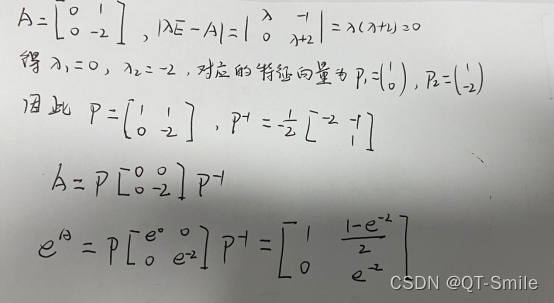 A = [0 1; 0 -2], |λE - A| = |λ -1; 0 λ+2| = λ(λ+2) = 0
得 λ₁=0, λ₂=-2, 对应的特征向量为 P₁=(1; 0), P₂=(1; -2)
因此 P = [1 1; 0 -2], P⁻¹ = -1/2 [-2 -1; 1]
A = P [0 0; 0 -2] P⁻¹
e^A = P [e⁰ 0; 0 e⁻²] P⁻¹ = [1 (1-e⁻²)/2; 0 e⁻²]
CSDN @QT-Smile